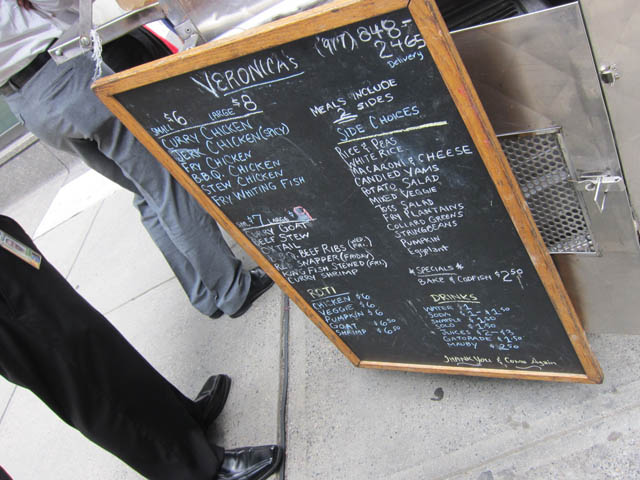 VERONICA's
(917) 848-
2465
Delivery
SMALL $6 LARGE $8
CURRY CHICKEN
JERK CHICKEN (SPICY)
FRY CHICKEN
B.B.Q. CHICKEN
STEW CHICKEN
FRY WHITING FISH
$7 LARGE
CURRY GOAT
BEEF STEW
OXTAIL
BEEF RIBS
RED SNAPPER (FRIDAY)
KING FISH STEWED (FRI)
CURRY SHRIMP
ROTI
CHICKEN $6
VEGGIE $6
PUMPKIN $6
GOAT $6.50
SHRIMP $6.50
MEALS INCLUDE
2 SIDES
SIDE CHOICES
RICE & PEAS
WHITE RICE
MACARONI & CHEESE
CANDIED YAMS
POTATO SALAD
MIXED VEGGIE
TOSS SALAD
FRY PLANTAINS
COLLARD GREENS
STRINGBEANS
PUMPKIN
Eggplant
*SPECIALS*
BAKE & CODFISH $2.50
DRINKS
WATER
SODA
SNAPPLE
SOLO $1.50
JUICES $2-$3
GATORADE $2.50
MAUBY $2.50
Thank You & Come Again